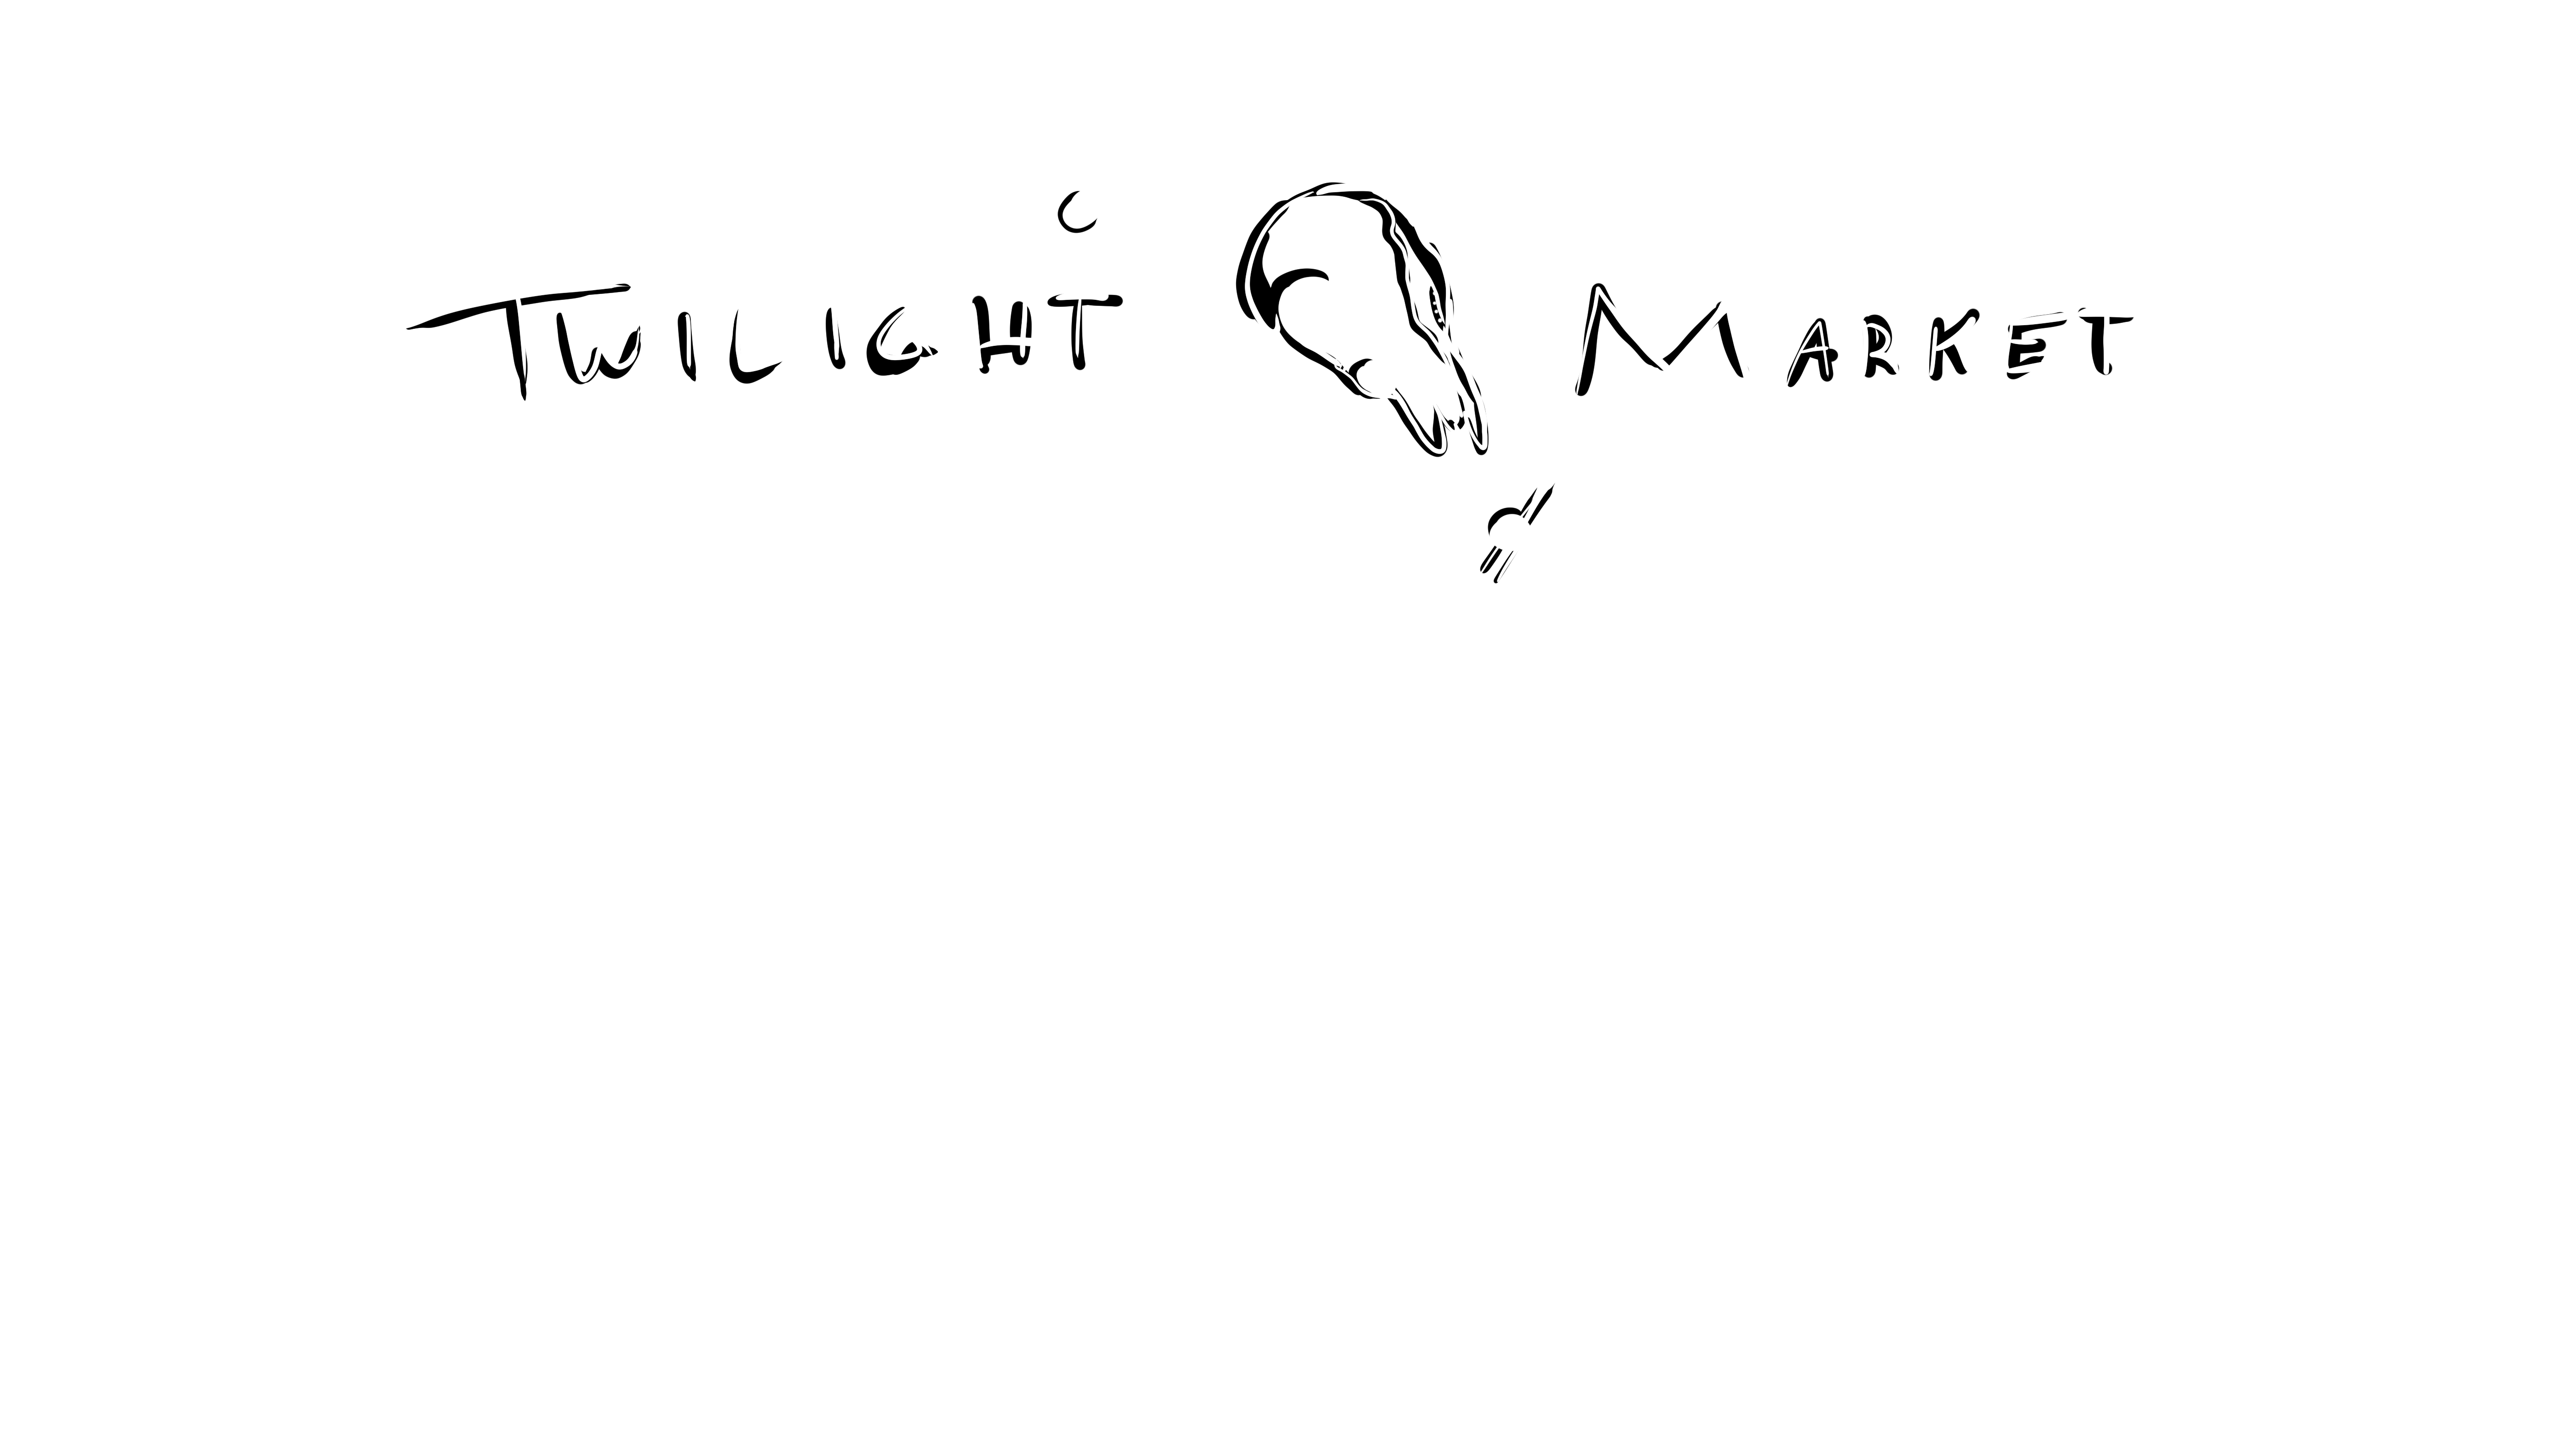 Twilight Market